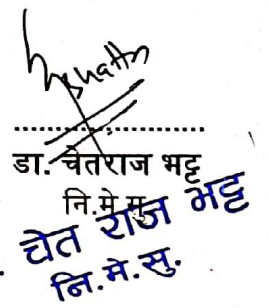 डा. चेतराज भट्ट
नि.मे.सु.
चेत राज भट्ट
नि.मे.सु.